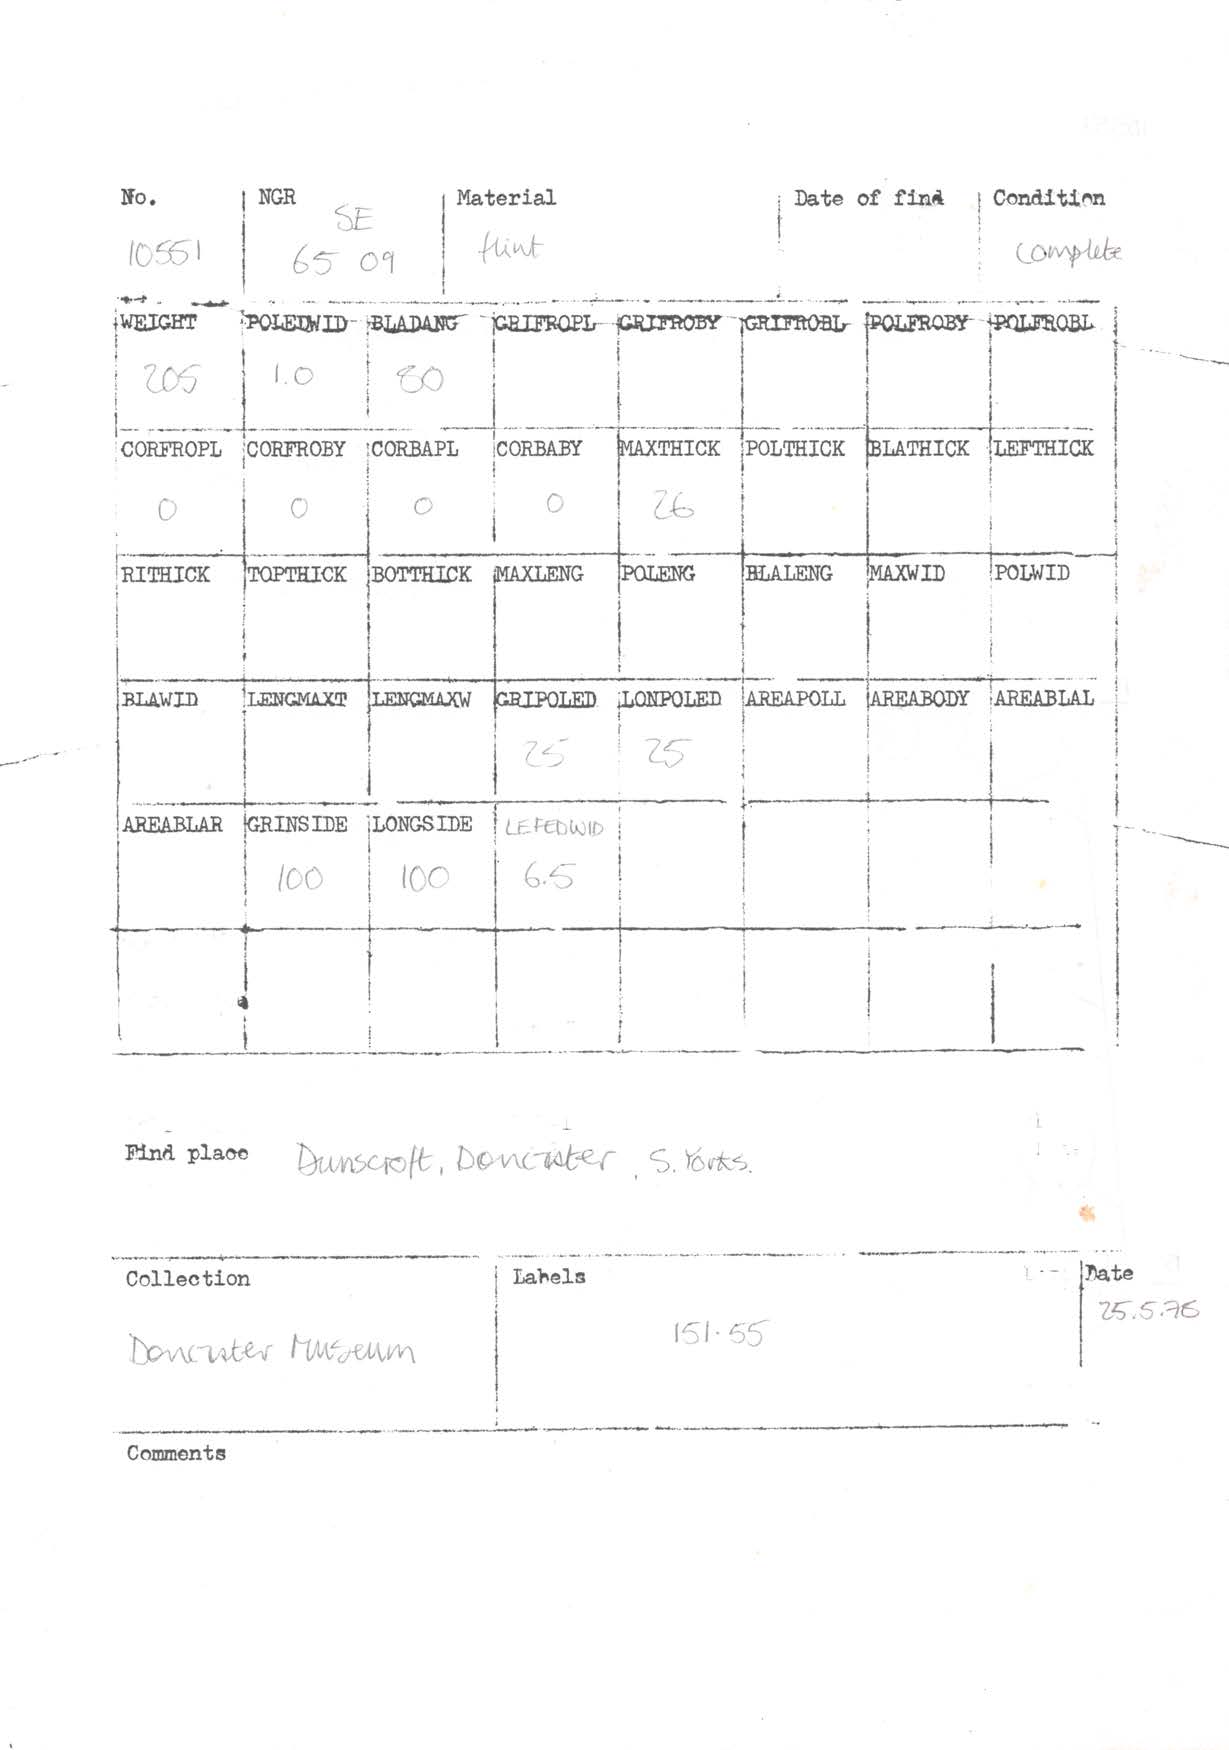 No. NGR Material Date of find Condition
SE
10551 65 09 flint complete
WEIGHT POLEDWID BLADANG GRIFROPL GRIFROBY GRIFROBL POLFROBY POLFROBL
205 1.0 80
CORFROPL CORFROBY CORBAPL CORBABY MAXTHICK POLTHICK BLATHICK LEFTHICK
0 0 0 0 26
RITHICK TOPTHICK BOTTHICK MAXLENG POLENG BLALENG MAXWID POLWID
BLAWID LENGMAXT LENGMAXW GRIPOLED LONPOLED AREAPOLL AREABODY AREABLAL
25 25
AREABLAR GRINSIDE LONGSIDE LEFEDWID
100 100 6.5
Find place Dunscroft, Doncaster, S. Yorks.
Collection Labels Date
25.5.76
Doncaster Museum 151.55
Comments